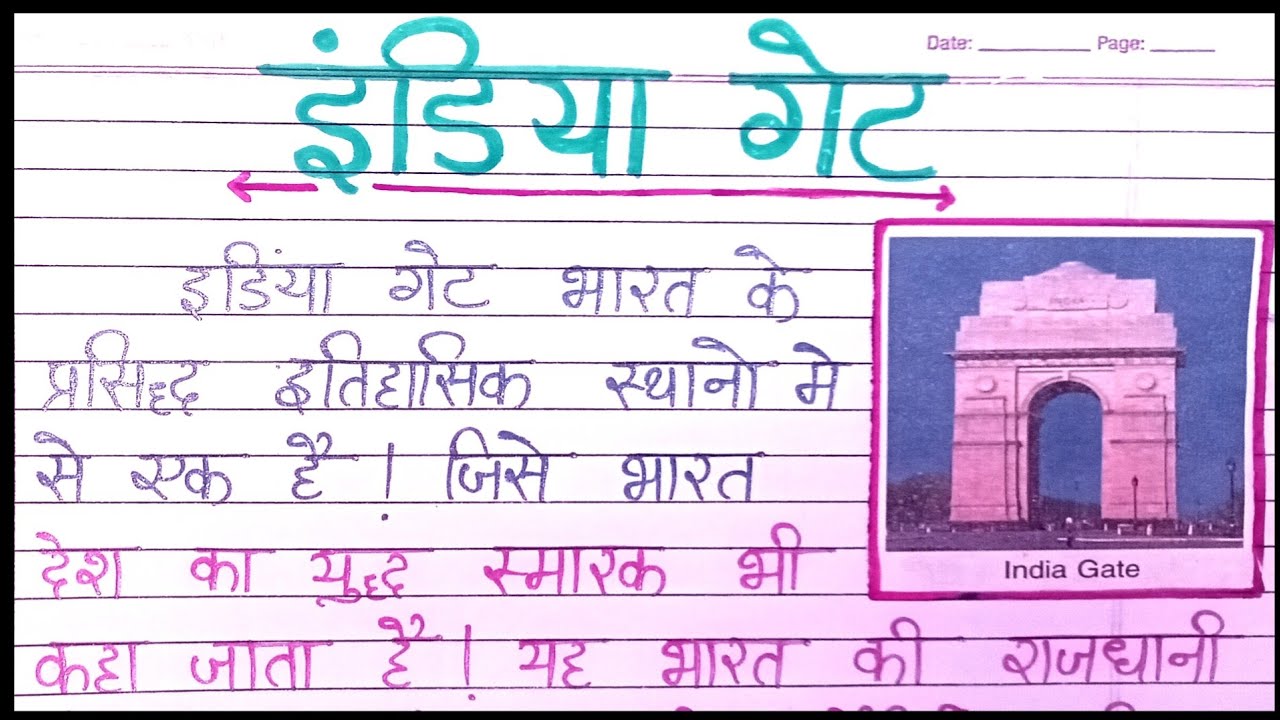 Date: ________ Page: _____
इंडिया गेट
इडिंया गेट भारत के
प्रसिद्ध इतिहासिक स्थानो मे
से एक है । जिसे भारत
देश का युद्ध स्मारक भी
कहा जाता है । यह भारत की राजधानी
India Gate